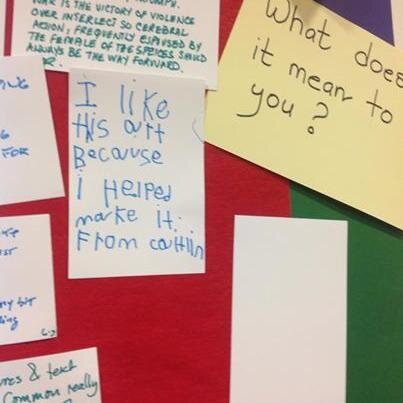 WAR IS THE VICTORY OF VIOLENCE
OVER INTERLECT SO CEREBRAL
ACTION, FREQUENTLY ESPOUSED BY
THE FEMALE OF THE SPECIES SHOULD
ALWAYS BE THE WAY FORWARD.
What does
it mean to
you?
I like
this art
Because
i Helped
make it.
From caitlin
FOR
my bit
& text
Common really